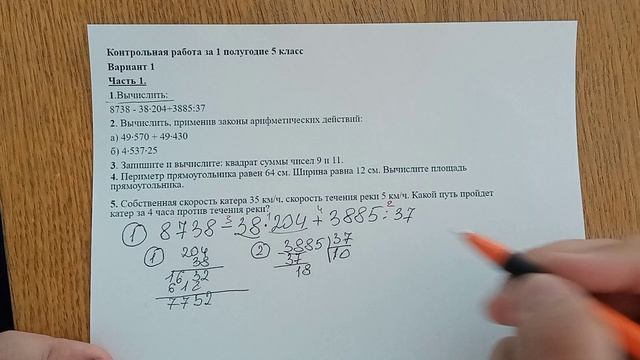 Контрольная работа за 1 полугодие 5 класс
Вариант 1
Часть 1.
1.Вычислить:
8738 - 38·204+3885:37
2. Вычислить, применив законы арифметических действий:
а) 49·570 + 49·430
б) 4·537·25
3. Запишите и вычислите: квадрат суммы чисел 9 и 11.
4. Периметр прямоугольника равен 64 см. Ширина равна 12 см. Вычислите площадь
прямоугольника.
5. Собственная скорость катера 35 км/ч, скорость течения реки 5 км/ч. Какой путь пройдет
катер за 4 часа против течения реки?
3 1 4 2
1 8738 - 38·204 + 3885:37
1 204
38
1632
612
7752
2 3885 37
37 10
18